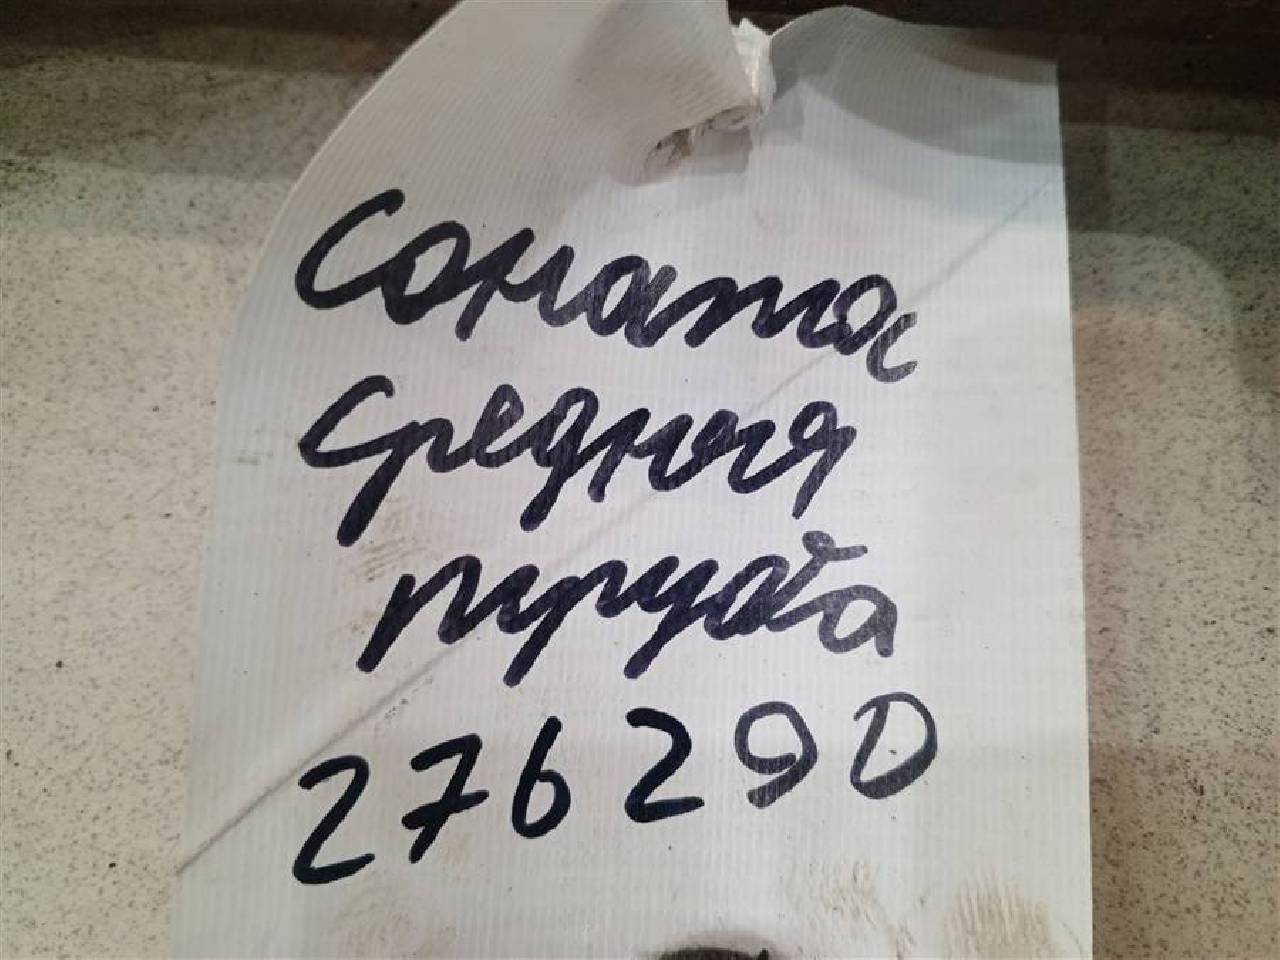 Соната
средняя
труба
276290